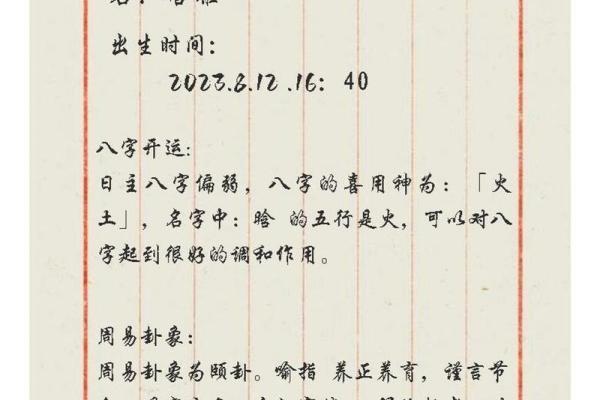 出生时间：
2023.8.12.16：40
八字开运：
日主八字偏弱，八字的喜用神为：「火
土」，名字中：晗 的五行是火，可以对八
字起到很好的调和作用。
周易卦象：
周易卦象为颐卦。喻指 养正养育，谨言节